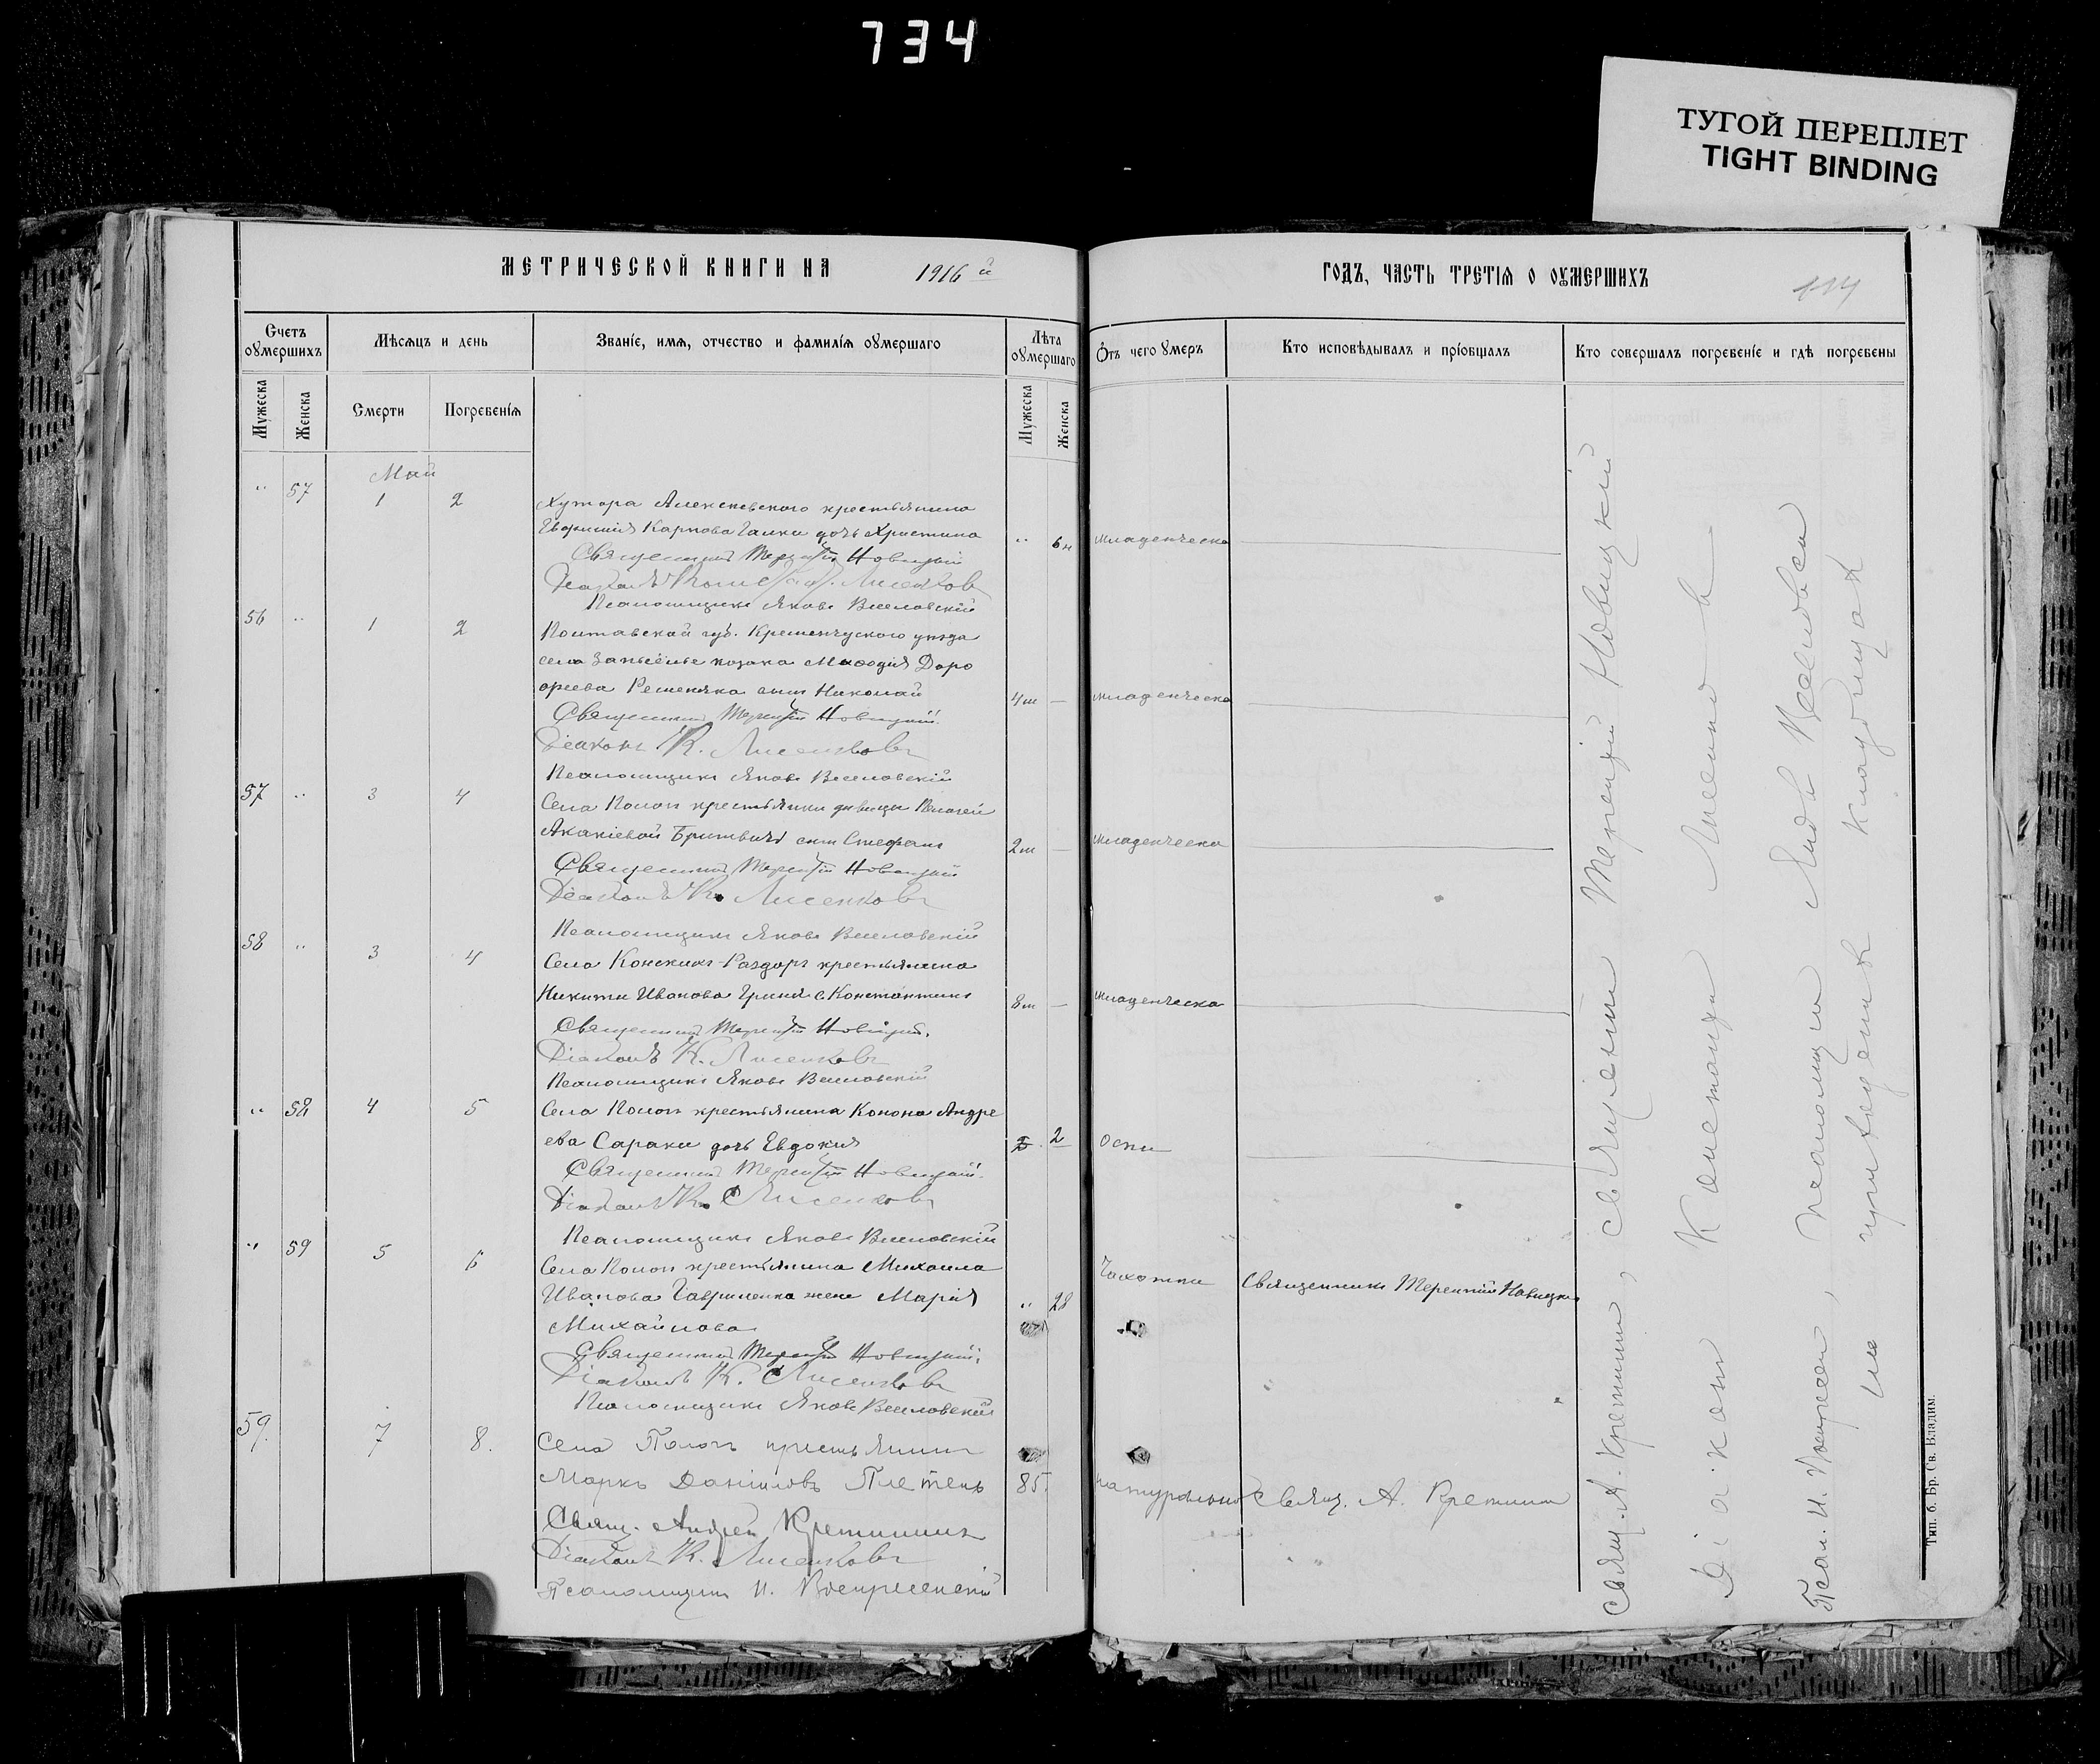 734
ТУГОЙ ПЕРЕПЛЕТ
TIGHT BINDING
МЕТРИЧЕСКОЙ КНИГИ НА 1916 й
ГОДЪ, ЧАСТЬ ТРЕТІЯ О ОУМЕРШИХЪ
114
Счетъ оумершихъ
Мѣсяцъ и день
Званіе, имя, отчество и фамилія оумершаго
Лѣта оумершаго
Отъ чего умеръ
Кто исповѣдывалъ и пріобщалъ
Кто совершалъ погребеніе и гдѣ погребены
Мужеска
Женска
Смерти
Погребенія
Мужеска
Женска
Май
" 57 1 2
Хутора Алексеевского крестьянина
Карпова Галки дочь Христина
" 6 н младенческа
Священникъ Терентій Новицкій
Діаконъ Лисенков
Псаломщикъ Яковъ Веселовскій
56 " 1 2
Полтавской губ. Кременчугского уезда
села козака Меѳодія Доро
ѳеева Решетяка сынъ Николай
4 м — младенческа
Священникъ Терентій Новицкій
Діаконъ К. Лисенковъ
Псаломщикъ Яковъ Веселовскій
57 " 3 4
Села Пологъ крестьянки девицы Пелагеи
Акакіевой сынъ Стефанъ
2 м — младенческа
Священникъ Терентій Новицкій
Діаконъ К. Лисенковъ
Псаломщикъ Яковъ Веселовскій
58 " 3 4
Села Конскихъ-Раздоръ крестьянина
Никиты Иванова с. Константинъ
8 м — младенческа
Священникъ Терентій Новицкій.
Діаконъ К. Лисенковъ
Псаломщикъ Яковъ Веселовскій
" 58 4 5
Села Пологъ крестьянина Конона Андре
ева Сараки дочь Евдокия
2 оспы
Священникъ Терентій Новицкій.
Діаконъ К. Лисенковъ
Псаломщикъ Яковъ Веселовскій
" 59 5 6
Села Пологъ крестьянина Михаила
Иванова Гавриленка жена Марія
Михайлова
" 28 Чахотки Священникъ Терентій Новицкій
Священникъ Терентій Новицкій
Діаконъ К. Лисенковъ
Псаломщикъ Яковъ Веселовскій
59. 7 8.
Села Пологъ крестьянинъ
Маркъ Даниловъ Плетень
85 натурально Свящ. А. Кретининъ
Свящ. Андрей Кретининъ
Діаконъ К. Лисенковъ
Псаломщикъ И. Воскресенскій
Свящ. А. Кретининъ, священникъ Терентій Новицкій
Діаконъ Лисенковъ
Псал. И. Воскресен, псаломщикъ Яковъ Веселовскій
на приходскомъ кладбищѣ
Тип. б. Бр. Св. Владим.